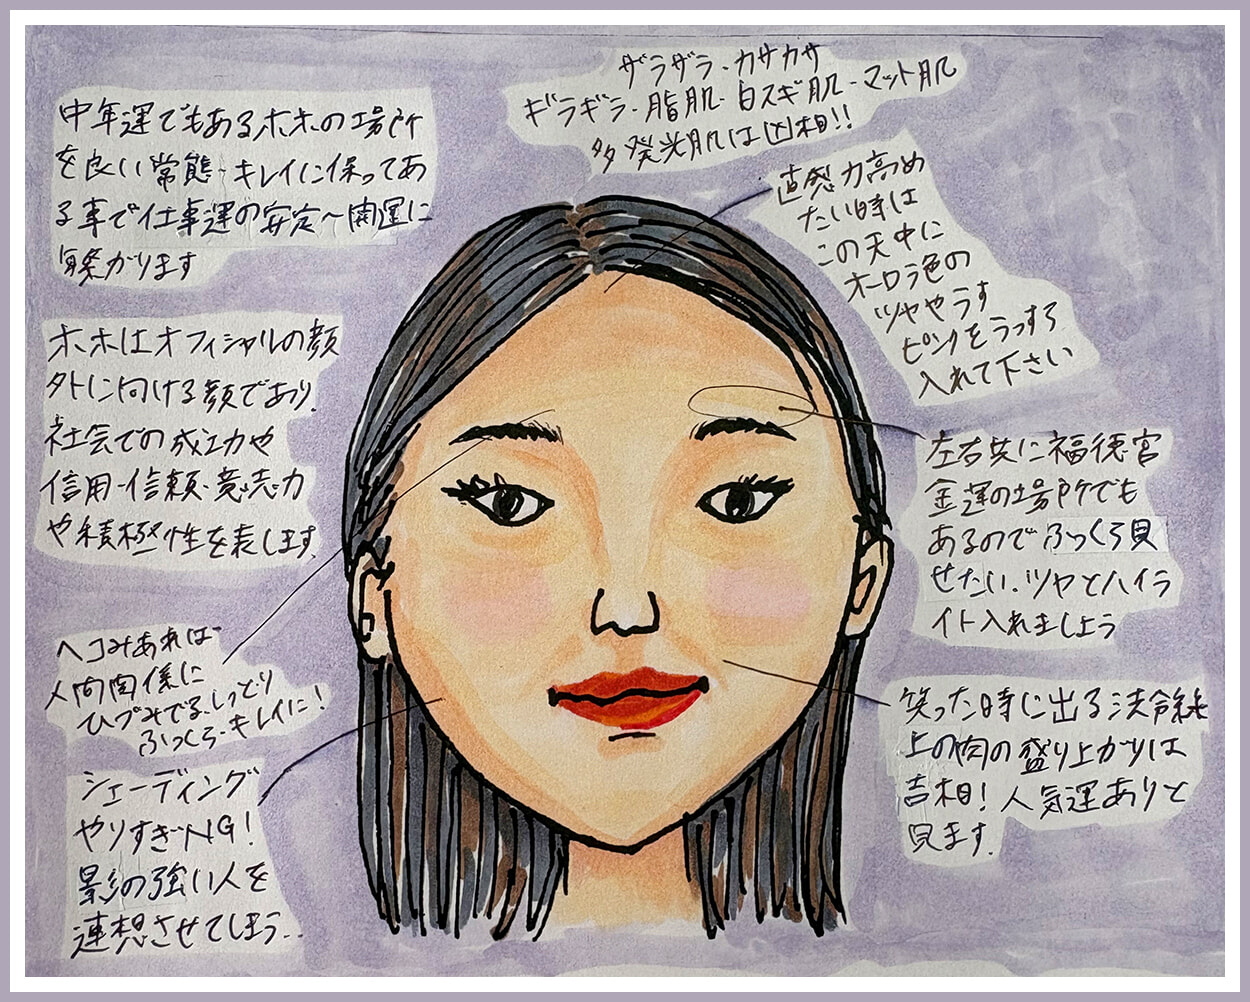 ザラザラ・カサカサ
ギラギラ・脂肌・白スギ肌・マット肌
多発光肌は凶相!!
中年運でもあるホホの場所
を良い常態・キレイに保ってあ
る事で仕事運の安定〜開運に
繋がります
直感力高め
たい時は
この天中に
オーロラ色の
ツヤやうす
ピンクをうっすら
入れて下さい
ホホはオフィシャルの顔
外に向ける顔であり、
社会での成功や
信用・信頼・意志力
や積極性を表します。
左右共に福徳宮
金運の場所でも
あるのでふっくら見
せたい。ツヤとハイラ
イト入れましょう
ヘコみあれば
人間関係に
ひびみでる、しっとり
ふっくら・キレイに!
笑った時に出る法令線
上の肉の盛り上がりは
吉相!人気運ありと
見ます。
シェーディング
やりすぎNG!
影の強い人を
連想させてしまう…